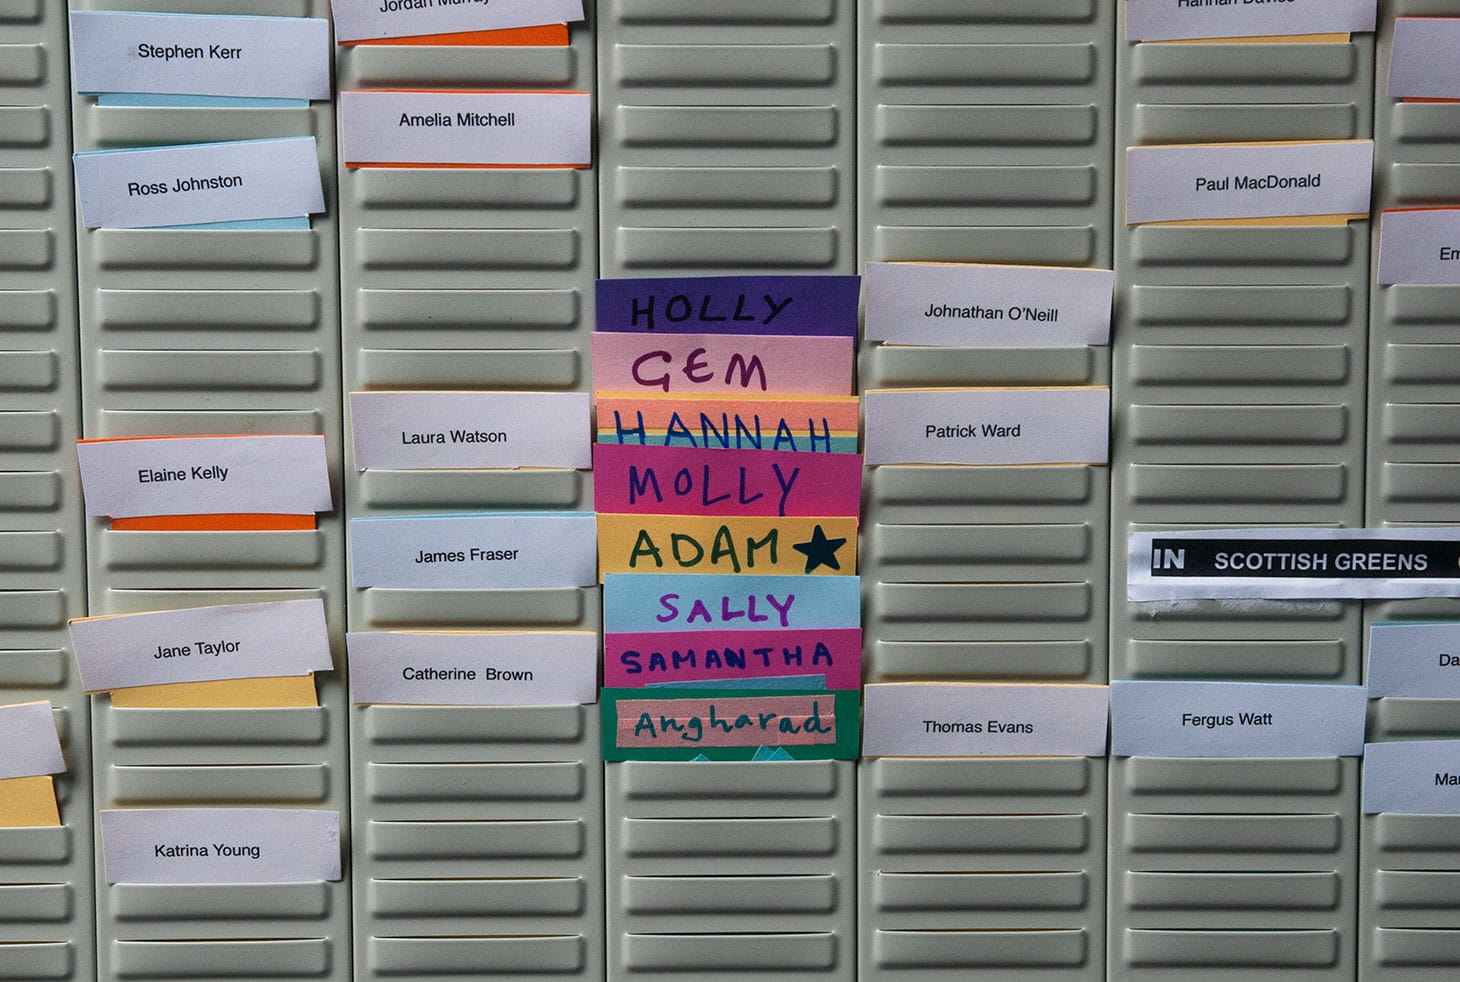 Stephen Kerr
Ross Johnston
Elaine Kelly
Jane Taylor
Katrina Young
Jordan Murray
Amelia Mitchell
Laura Watson
James Fraser
Catherine Brown
HOLLY
GEM
HANNAH
MOLLY
ADAM ★
SALLY
SAMANTHA
Angharad
Johnathan O'Neill
Patrick Ward
Thomas Evans
Hannah Davies
Paul MacDonald
IN SCOTTISH GREENS
Fergus Watt
Em
Da
Ma